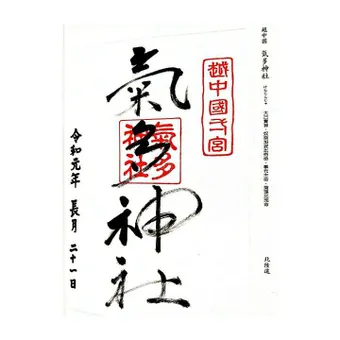 越中國 氣多神社
越中國一宮
氣多神社
氣多神社
令和元年 長月 二十一日
北陸道